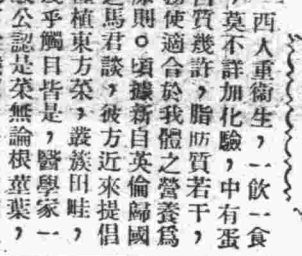 西人重衞生，一飮一食
，莫不詳加化驗，中有蛋
白質幾許，脂肪質若干，
務使適合於我體之營養爲
原則。頃據新自英倫歸國
之馬君談，彼方近來提倡
植東方菜，叢族田畦，
幾乎觸目皆是，醫學家一
公認是菜無論根莖葉，